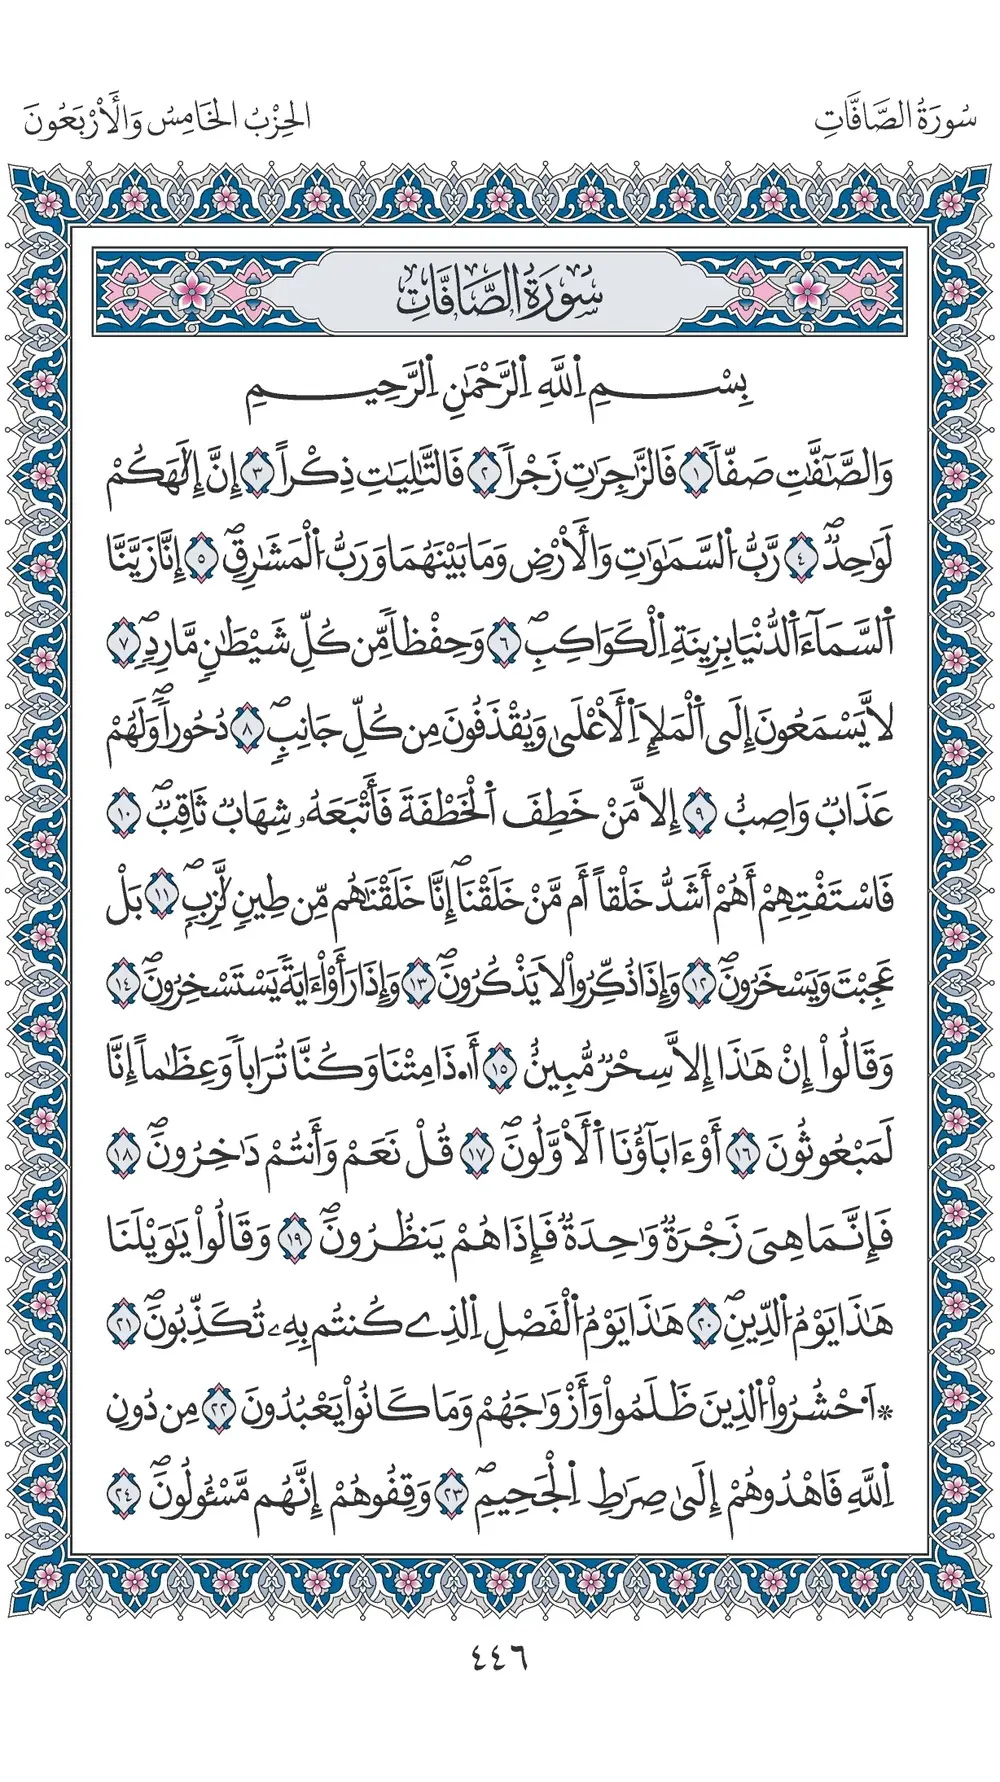 سُورَةُ الصَّافَّاتِ
الحِزْبُ الخَامِسُ وَالأَرْبَعُونَ
سُورَةُ الصَّافَّاتِ
بِسْمِ اِ۬للَّهِ اِ۬لرَّحْمَٰنِ اِ۬لرَّحِيمِ
وَالصَّٰٓفَّٰتِ صَفّاٗ ١ فَالزَّٰجِرَٰتِ زَجْراٗ ٢ فَالتَّٰلِيَٰتِ ذِكْراً ٣ إِنَّ إِلَٰهَكُمْ
لَوَٰحِدٞۖ ٤ رَّبُّ اُ۬لسَّمَٰوَٰتِ وَالَارْضِ وَمَا بَيْنَهُمَا وَرَبُّ اُ۬لْمَشَٰرِقِۖ ٥ إِنَّا زَيَّنَّا
اَ۬لسَّمَآءَ اَ۬لدُّنْيَا بِزِينَةِ اِ۬لْكَوَاكِبِۖ ٦ وَحِفْظاٗ مِّن كُلِّ شَيْطَٰنٖ مَّارِدٖۖ ٧
لَّا يَسْمَعُونَ إِلَي اَ۬لْمَلَإِ اِ۬لَاعْلَىٰ وَيُقْذَفُونَ مِن كُلِّ جَانِبٖۖ ٨ دُحُوراٗۖ وَلَهُمْ
عَذَابٞ وَاصِبٌ ٩ اِلَّا مَنْ خَطِفَ اَ۬لْخَطْفَةَ فَأَتْبَعَهُۥ شِهَابٞ ثَاقِبٞۖ ١٠
فَاسْتَفْتِهِمُۥٓ أَهُمُۥٓ أَشَدُّ خَلْقاً اَم مَّنْ خَلَقْنَآۖ إِنَّا خَلَقْنَٰهُم مِّن طِينٖ لَّازِبِۢۖ ١١ بَلْ
عَجِبْتَ وَيَسْخَرُونَۖ ١٢ وَإِذَا ذُكِّرُواْ لَا يَذْكُرُونَۖ ١٣ وَإِذَا رَأَوَاْ اٰيَةٗ يَسْتَسْخِرُونَۖ ١٤
وَقَالُوٓاْ إِنْ هَٰذَآ إِلَّا سِحْرٞ مُّبِينٌ ١٥ اَ۟ذَا مِتْنَا وَكُنَّا تُرَاباٗ وَعِظَٰماً اِنَّا
لَمَبْعُوثُونَ ١٦ أَوَ ءَابَآؤُنَا اَ۬لَاوَّلُونَۖ ١٧ قُلْ نَعَمْ وَأَنتُمْ دَٰخِرُونَۖ ١٨
فَإِنَّمَا هِيَ زَجْرَةٞ وَٰحِدَةٞ فَإِذَا هُمْ يَنظُرُونَۖ ١٩ وَقَالُواْ يَٰوَيْلَنَا
هَٰذَا يَوْمُ اُ۬لدِّينِۖ ٢٠ هَٰذَا يَوْمُ اُ۬لْفَصْلِ اِ۬لذِے كُنتُم بِهِۦ تُكَذِّبُونَۖ ٢١
۞اَ۟حْشُرُواْ اُ۬لذِينَ ظَلَمُواْ وَأَزْوَٰجَهُمْ وَمَا كَانُواْ يَعْبُدُونَ ٢٢ مِن دُونِ
اِ۬للَّهِ فَاهْدُوهُمُۥٓ إِلَىٰ صِرَٰطِ اِ۬لْجَحِيمِۖ ٢٣ وَقِفُوهُمُۥٓ إِنَّهُم مَّسْـُٔولُونَۖ ٢٤
٤٤٦